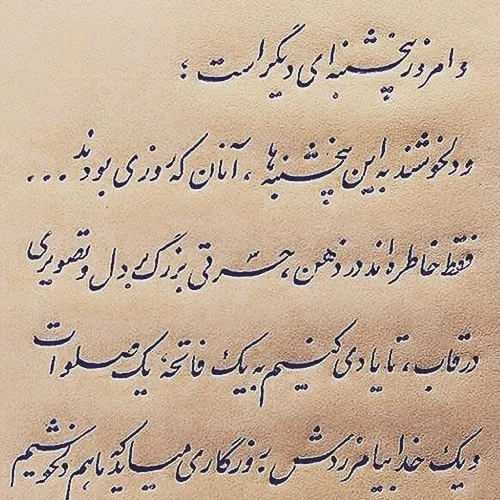 و امروز پنجشنبه ای دیگر است ؛
و دلخوشند به این پنجشنبه ها ، آنان که روزی بودند ...
فقط خاطره اند در ذهن ، حسرتی بزرگ بر دل و تصویری
در قاب ، تا یادی کنیم به یک فاتحه یک صلوات
و یک خدا بیامرزدش به روزگاری میایدکه ما هم دلخوشیم